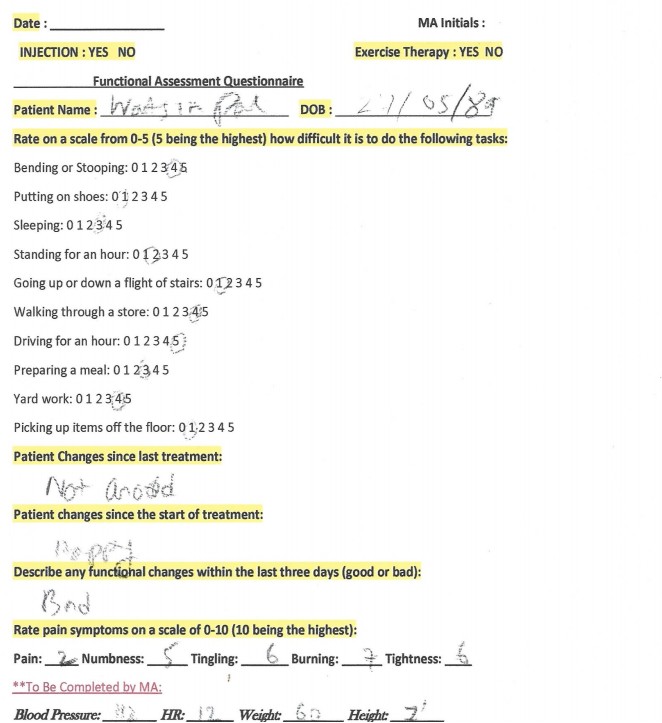 Date : ____________ MA Initials :
INJECTION : YES NO Exercise Therapy : YES NO
Functional Assessment Questionnaire
Patient Name : DOB : /05/
Rate on a scale from 0-5 (5 being the highest) how difficult it is to do the following tasks:
Bending or Stooping: 0 1 2 3 4 5
Putting on shoes: 0 1 2 3 4 5
Sleeping: 0 1 2 3 4 5
Standing for an hour: 0 1 2 3 4 5
Going up or down a flight of stairs: 0 1 2 3 4 5
Walking through a store: 0 1 2 3 4 5
Driving for an hour: 0 1 2 3 4 5
Preparing a meal: 0 1 2 3 4 5
Yard work: 0 1 2 3 4 5
Picking up items off the floor: 0 1 2 3 4 5
Patient Changes since last treatment:
Not
Patient changes since the start of treatment:
Describe any functional changes within the last three days (good or bad):
Bad
Rate pain symptoms on a scale of 0-10 (10 being the highest):
Pain: 2 Numbness: 5 Tingling: 6 Burning: 7 Tightness: 6
**To Be Completed by MA:
Blood Pressure: HR: 12 Weight: 60 Height: 7'